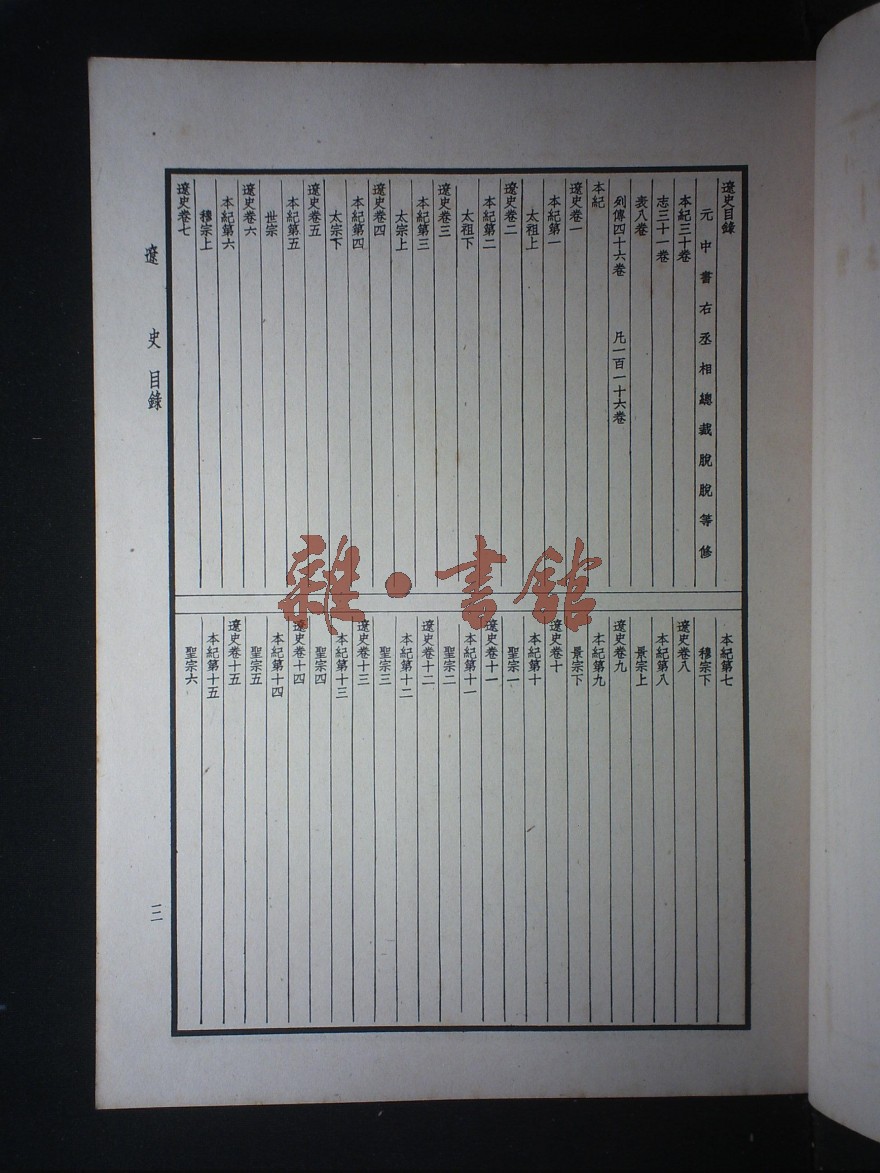 遼史目錄
元中書右丞相總裁脫脫等修
本紀三十卷
志三十一卷
表八卷
列傳四十六卷 凡一百一十六卷
本紀
遼史卷一
本紀第一
太祖上
遼史卷二
本紀第二
太祖下
遼史卷三
本紀第三
太宗上
遼史卷四
本紀第四
太宗下
遼史卷五
本紀第五
世宗
遼史卷六
本紀第六
穆宗上
遼史卷七
本紀第七
穆宗下
遼史卷八
本紀第八
景宗上
遼史卷九
本紀第九
景宗下
遼史卷十
本紀第十
聖宗一
遼史卷十一
本紀第十一
聖宗二
遼史卷十二
本紀第十二
聖宗三
遼史卷十三
本紀第十三
聖宗四
遼史卷十四
本紀第十四
聖宗五
遼史卷十五
本紀第十五
聖宗六
遼史 目錄
三
雜·書館